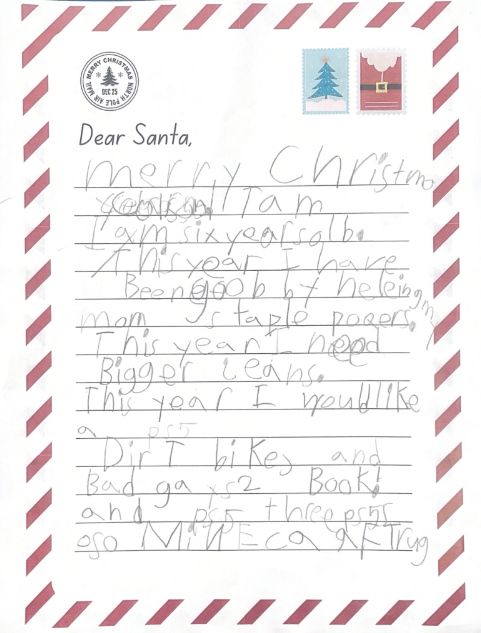 MERRY CHRISTMAS
DEC 25
NORTH POLE AIR MAIL
Dear Santa,
merry Christmo
I am
I am six years olb.
This year I have
Been goob by heleing my
mom staple popers.
This year I need
Bigger Leans.
This year I would like
a ps5
DirT bikes and
Bad gays2 Book!
and ps5 three ps5s
oso MiNEcaRFT rug